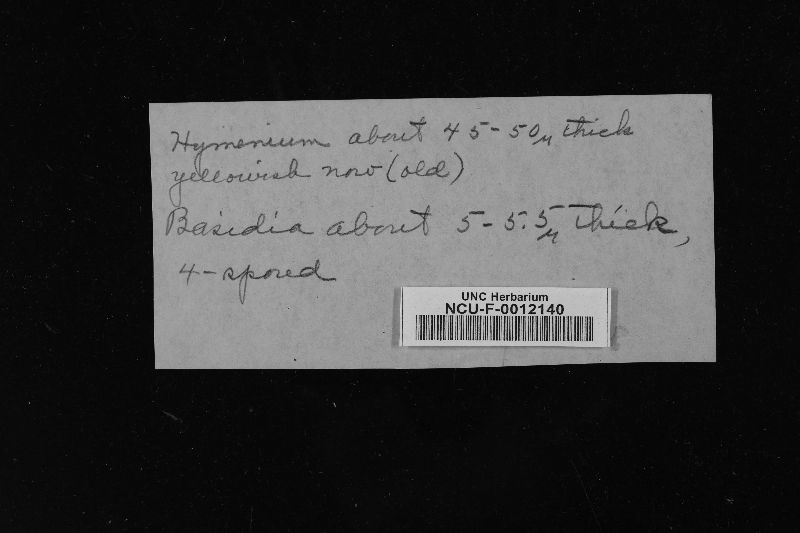 Hymenium about 45-50μ thick
yellowish now (old)
Basidia about 5-5.5μ thick,
4-spored
UNC Herbarium
NCU-F-0012140